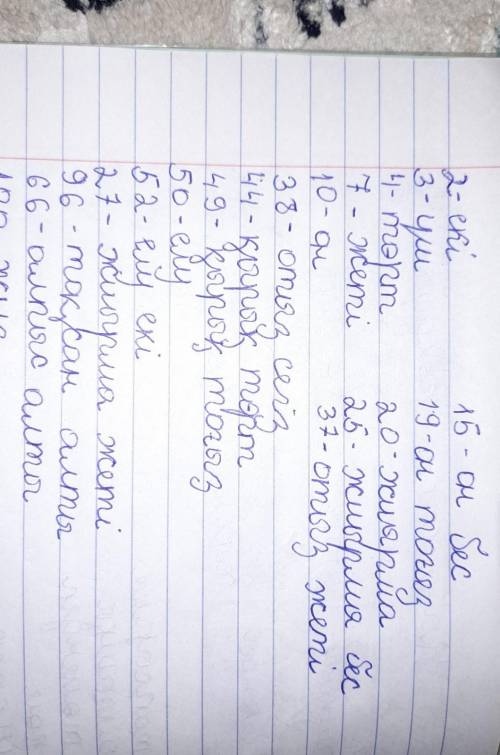 2-екі 15-он бес
3-үш 19-он тоғыз
4-төрт 20-жиырма
7-жеті 25-жиырма бес
10-он 37-отыз жеті
38-отыз сегіз
44-қырық төрт
49-қырық тоғыз
50-елу
52-елу екі
27-жиырма жеті
96-тоқсан алты
66-алпыс алты